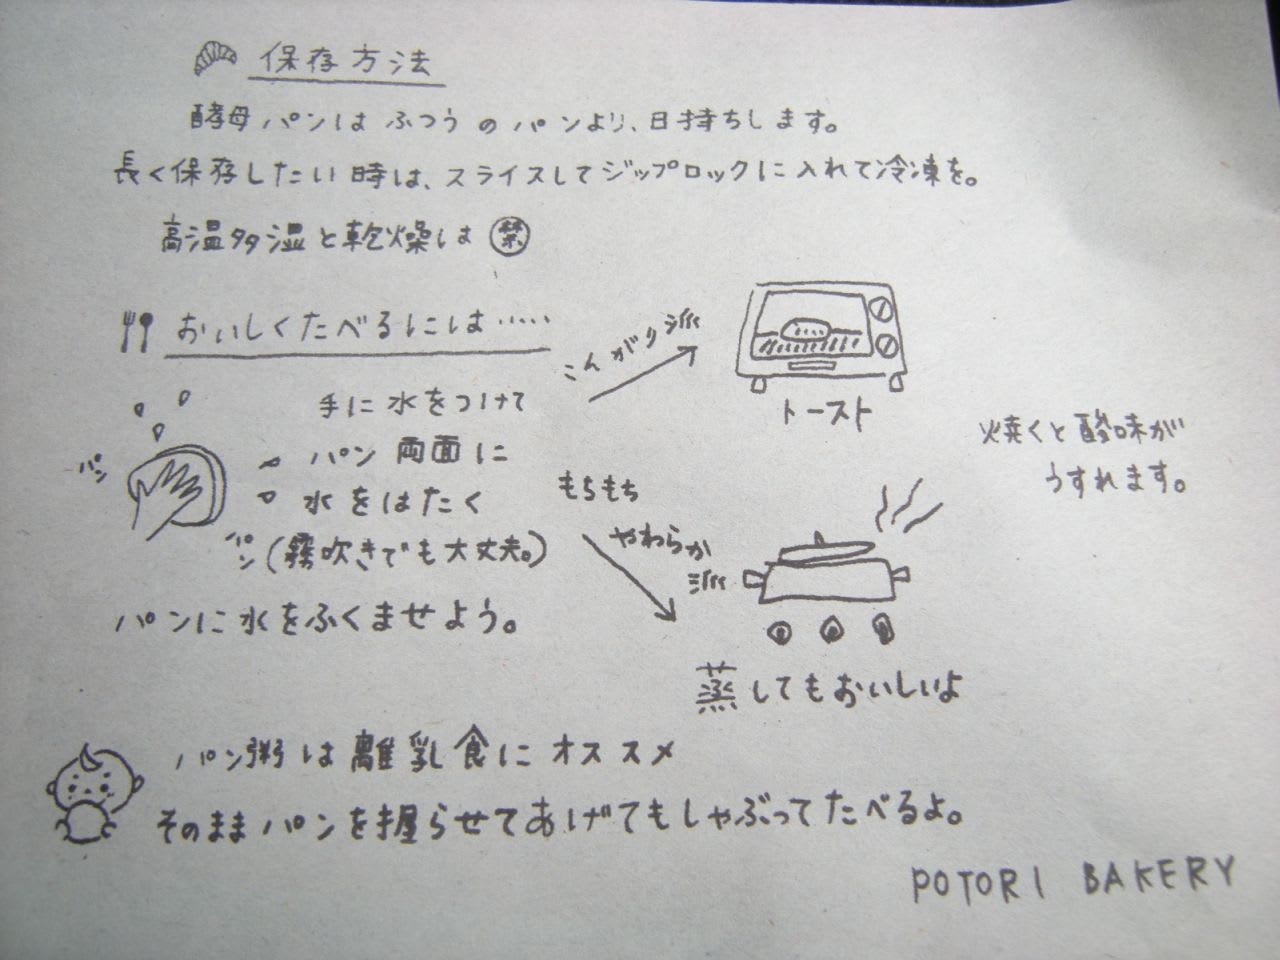 保存方法
酵母パンはふつうのパンより、日持ちします。
長く保存したい時は、スライスしてジップロックに入れて冷凍を。
高温多湿と乾燥は禁
おいしくたべるには……
手に水をつけて
パン両面に
水をはたく
(霧吹きでも大丈夫。)
パンに水をふくませよう。
パン
パン
こんがり
トースト
焼くと酸味が
うすれます。
もちもち
やわらか
蒸してもおいしいよ
パン粥は離乳食にオススメ
そのままパンを握らせてあげてもしゃぶってたべるよ。
POTORI BAKERY